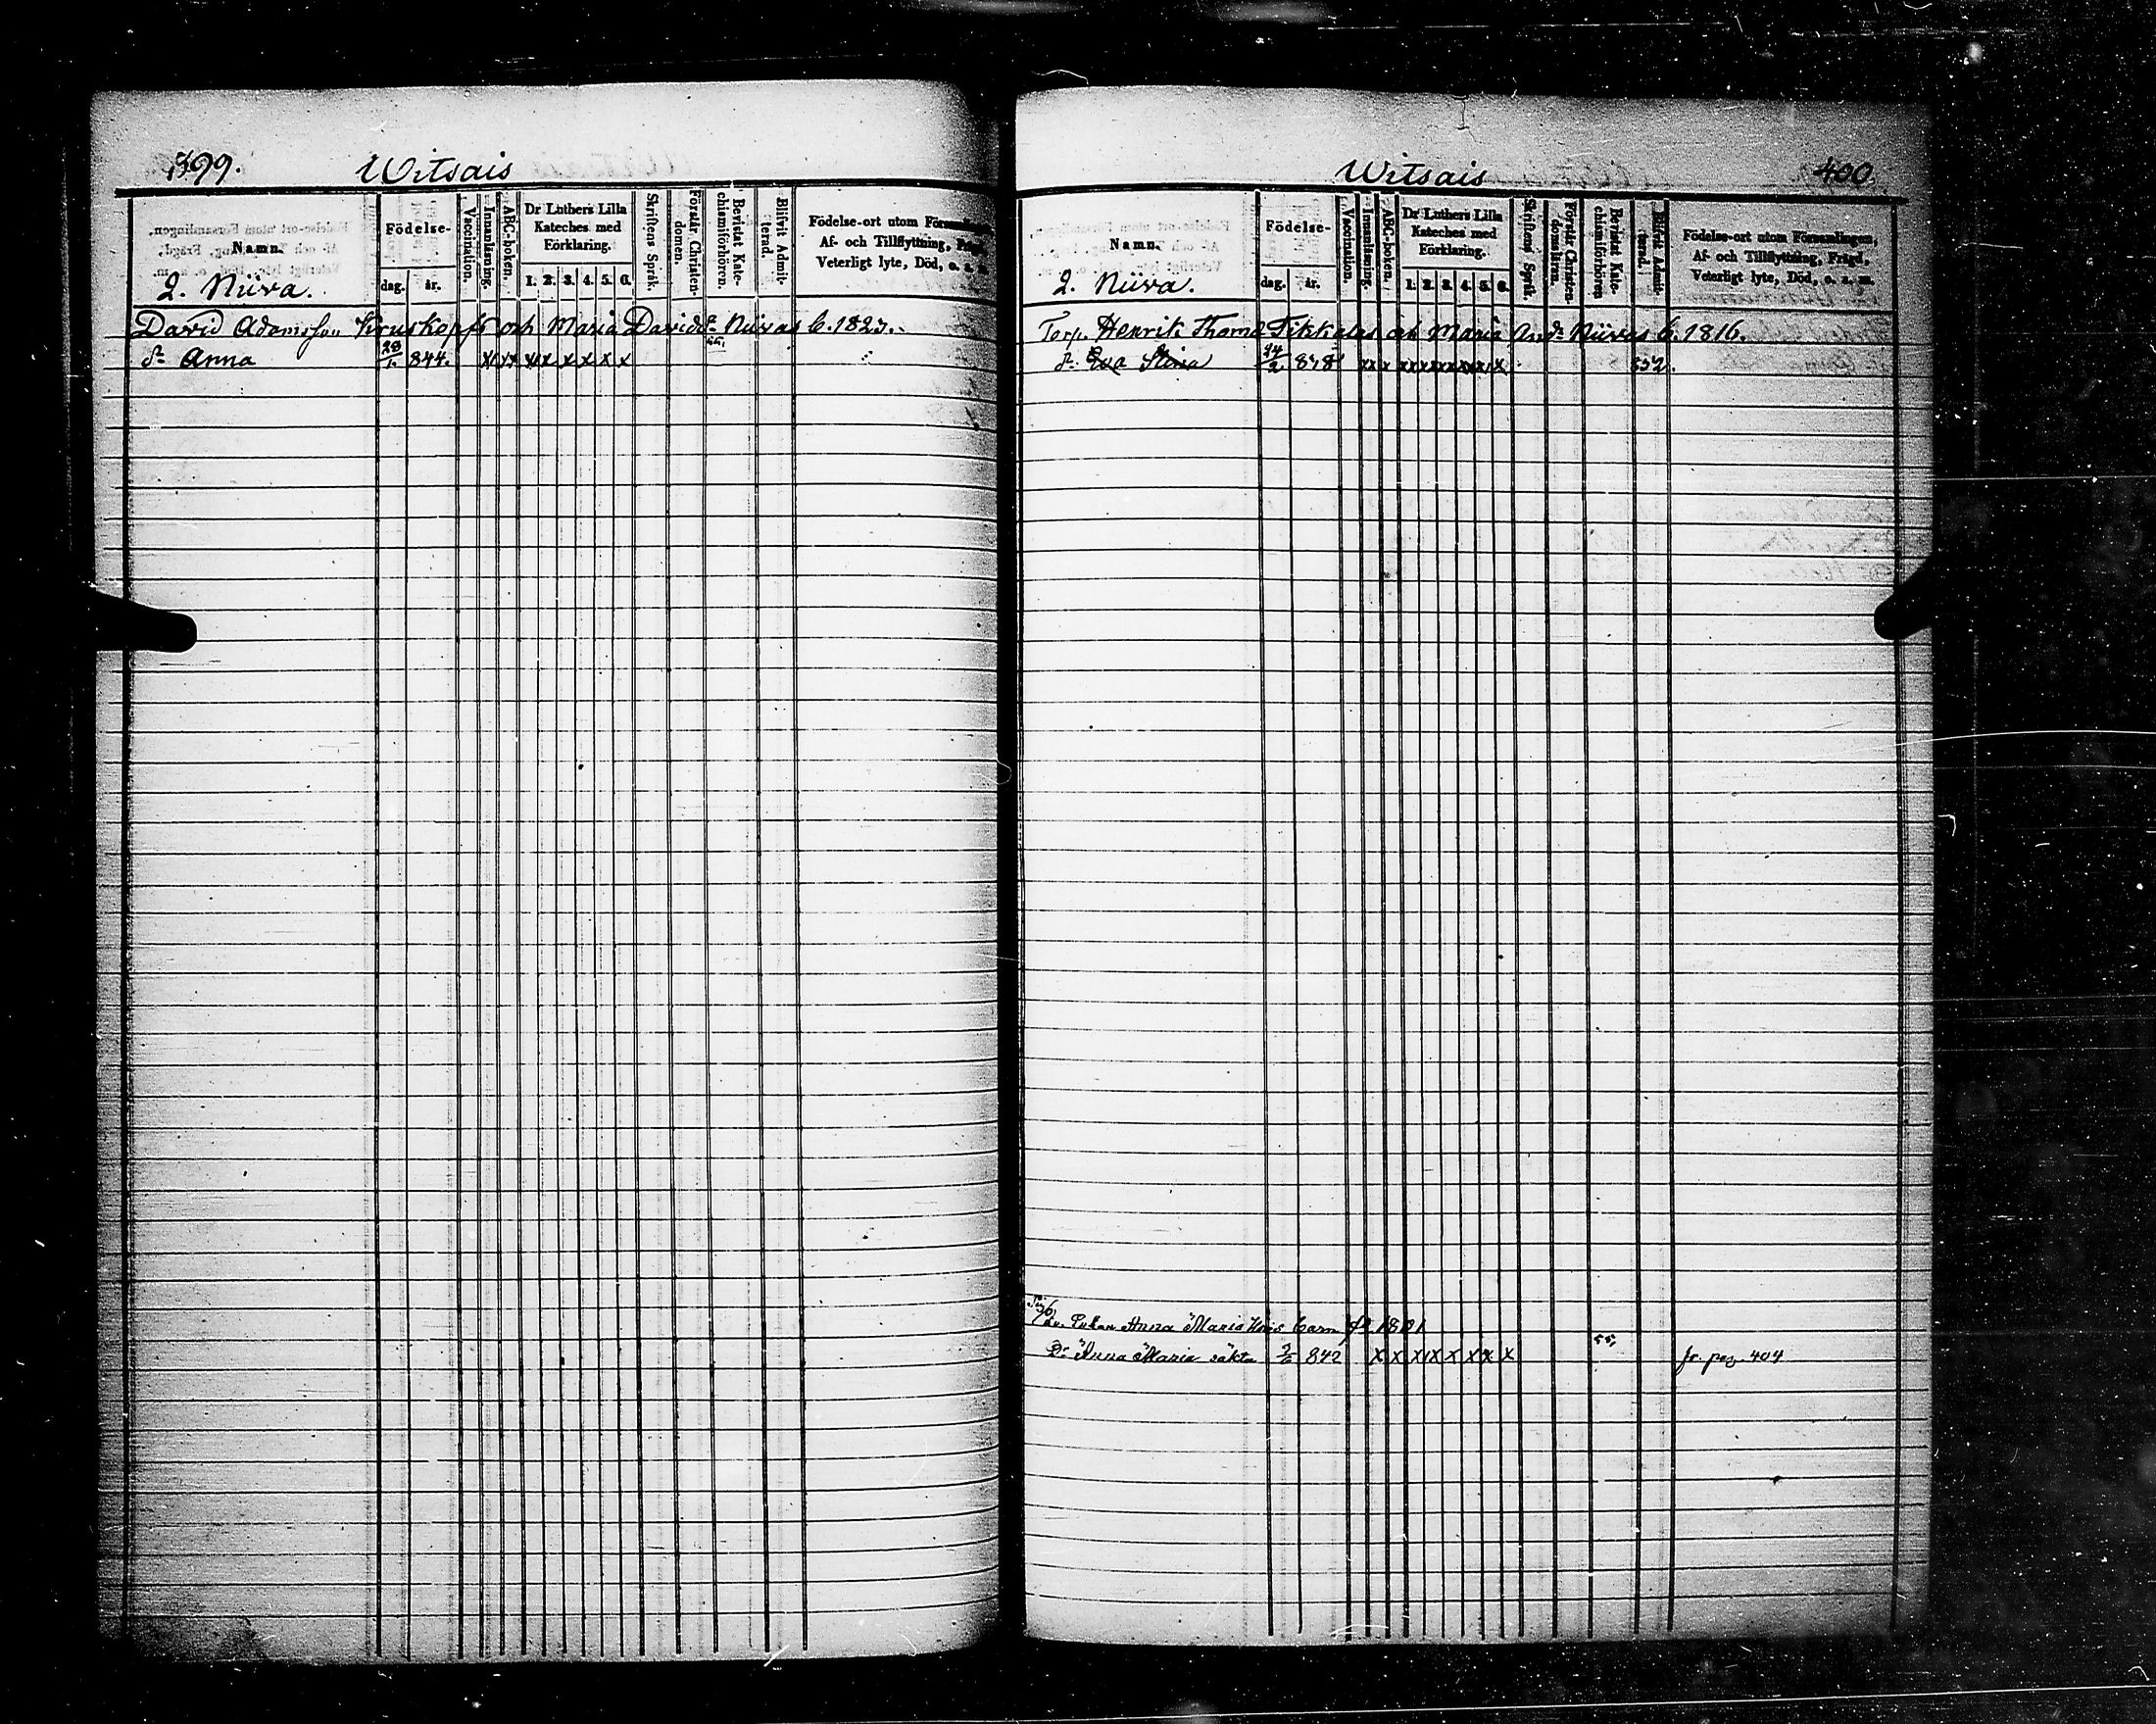 399.
Witsais
Namn.
2. Niiva.
Födelse-
dag.
år.
Vaccination.
Innanläsning.
ABC-boken.
Dr Luthers Lilla
Kateches med
Förklaring.
1. 2. 3. 4. 5. 6.
Skriftens Språk.
Förstår Christen-
domen.
Bevistat Kate-
chismiförhören.
Blifvit Admit-
terad.
Födelse-ort utom
Af- och Tillflyttning,
Veterligt lyte, Död, o. s.
David Adamsson Kruskopfs och Maria Davidsdr Niivas b. 1823.
dr Anna 28/1. 844. x x x x x x x x
Witsais
400.
Namn.
2. Niiva.
Födelse-
dag.
år.
Vaccination.
Innanläsning.
ABC-boken.
Dr Luthers Lilla
Kateches med
Förklaring.
1. 2. 3. 4. 5. 6.
Skriftens Språk.
Förstår Christen-
domsläran.
Bevistat Kate-
chismiförhören
Blifvit Admit-
terad.
Födelse-ort utom Församlingen,
Af- och Tillflyttning, Frägd,
Veterligt lyte, Död, o. s. m.
Torp. Henrik Thomas Tikkalas och Maria And. Niivas b. 1816.
dr Eva Stina 24/2 838
Anna Maria barn 1801
Dr Anna Maria 842 x x x x x x x x 55, fr. pag. 404